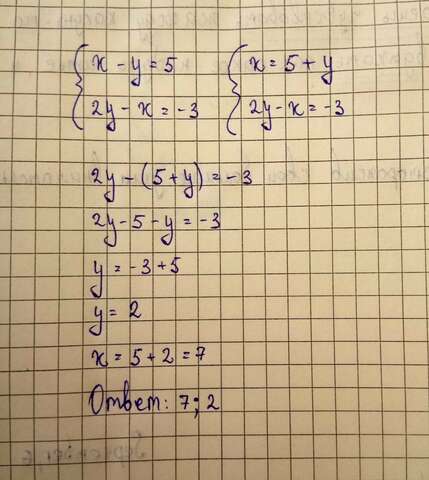 x - y = 5
2y - x = -3
x = 5 + y
2y - x = -3
2y - (5 + y) = -3
2y - 5 - y = -3
y = -3 + 5
y = 2
x = 5 + 2 = 7
Ответ: 7; 2